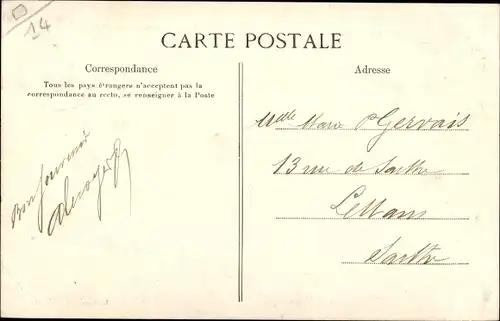 14
CARTE POSTALE
Correspondance
Tous les pays étrangers n'acceptent pas la
correspondance au recto, se renseigner à la Poste
Bon Souvenir
Adresse
Melle Marie Gervais
13 rue de Sarthe
Le Mans
Sarthe